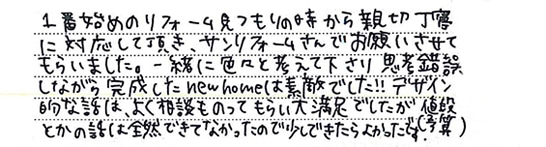 1番始めのリフォーム見つもりの時から親切丁寧
に対応して頂き、サンリフォームさんでお願いさせて
もらいました。一緒に色々と考えて下さり思考錯誤
しながら完成したnew homeは素敵でした!! デザイン
的な話は、よく相談ものってもらい大満足でしたが値段
とかの話は全然できてなかったので少しできたらよかったです。(予算)